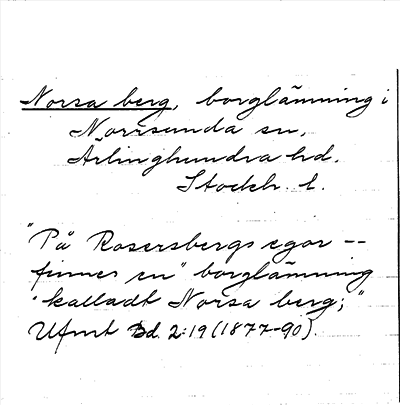 Norsa berg, borglämning i
Norrsunda sn,
Ärlinghundra hd.
Stockh. l.
"På Rosersbergs egor --
finnes en" borglämning
"kalladt Norsa berg;"
Ufmt Bd. 2:19 (1877-90).